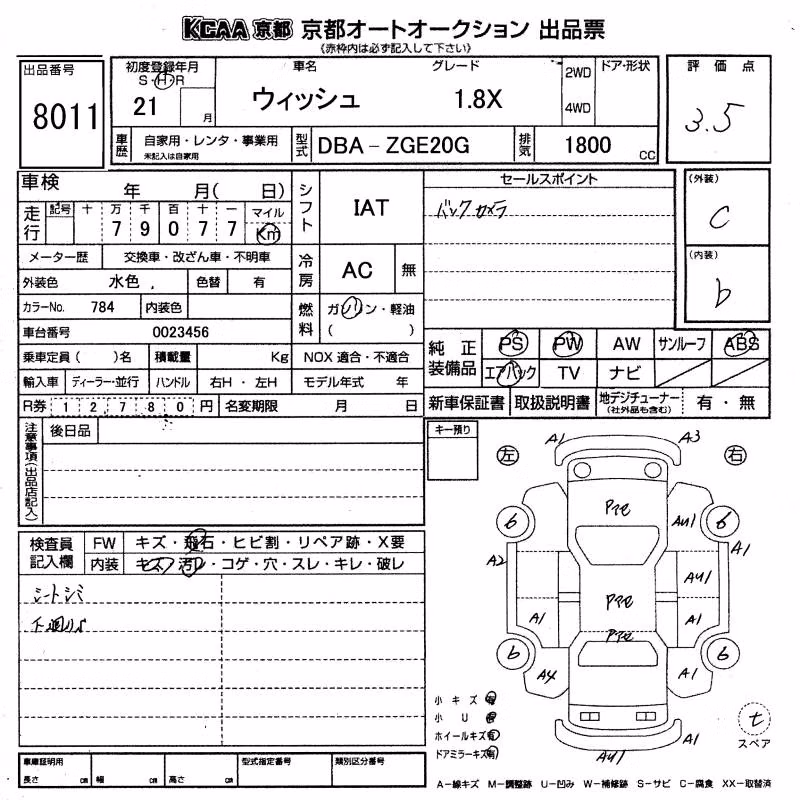 KCAA 京都 京都オートオークション 出品票
《赤枠内は必ず記入して下さい》
出品番号
8011
初度登録年月
S・H・R
21
月
車名
ウィッシュ
グレード
1.8X
2WD
4WD
ドア・形状
車歴
自家用・レンタ・事業用
未記入は自家用
型式
DBA－ZGE20G
排気
1800
CC
評価点
3.5
車検
年 月( 日)
走行
記号 十 万 千 百 十 一
7 9 0 7 7
マイル
Km
メーター歴
交換車・改ざん車・不明車
外装色
水色
色替
有
カラーNo.
784
内装色
車台番号
0023456
乗車定員( )名
積載量
Kg
輸入車
ディーラー・並行
ハンドル
右H・左H
R券
1 2,7 8 0 円
名変期限
月 日
シフト
IAT
冷房
AC
無
燃料
ガソリン・軽油
( )
NOX 適合・不適合
モデル年式 年
セールスポイント
バックカメラ
(外装)
C
(内装)
b
純正装備品
PS
PW
AW
サンルーフ
ABS
エアバック
TV
ナビ
新車保証書
取扱説明書
地デジチューナー
(社外品も含む)
有・無
注意事項(出品店記入)
後日品
キー預り
検査員記入欄
FW
キズ・飛石・ヒビ割・リペア跡・X要
内装
キズ・汚レ・コゲ・穴・スレ・キレ・破レ
シートシミ
下廻りサ
左
右
A1
A3
b
b
Pﾏﾋ
AU1
A1
A2
AU1
Pﾏﾋ
A1
A1
Pﾏﾋ
b
b
A4
A1
A1
AU1
小キズ有
小U有
ホイールキズ有
ドアミラーキズ有
t
スペア
車庫証明用
長さ cm
幅 cm
高さ cm
型式指定番号
類別区分番号
A－線キズ M－調整跡 U－凹み W－補修跡 S－サビ C－腐食 XX－取替済